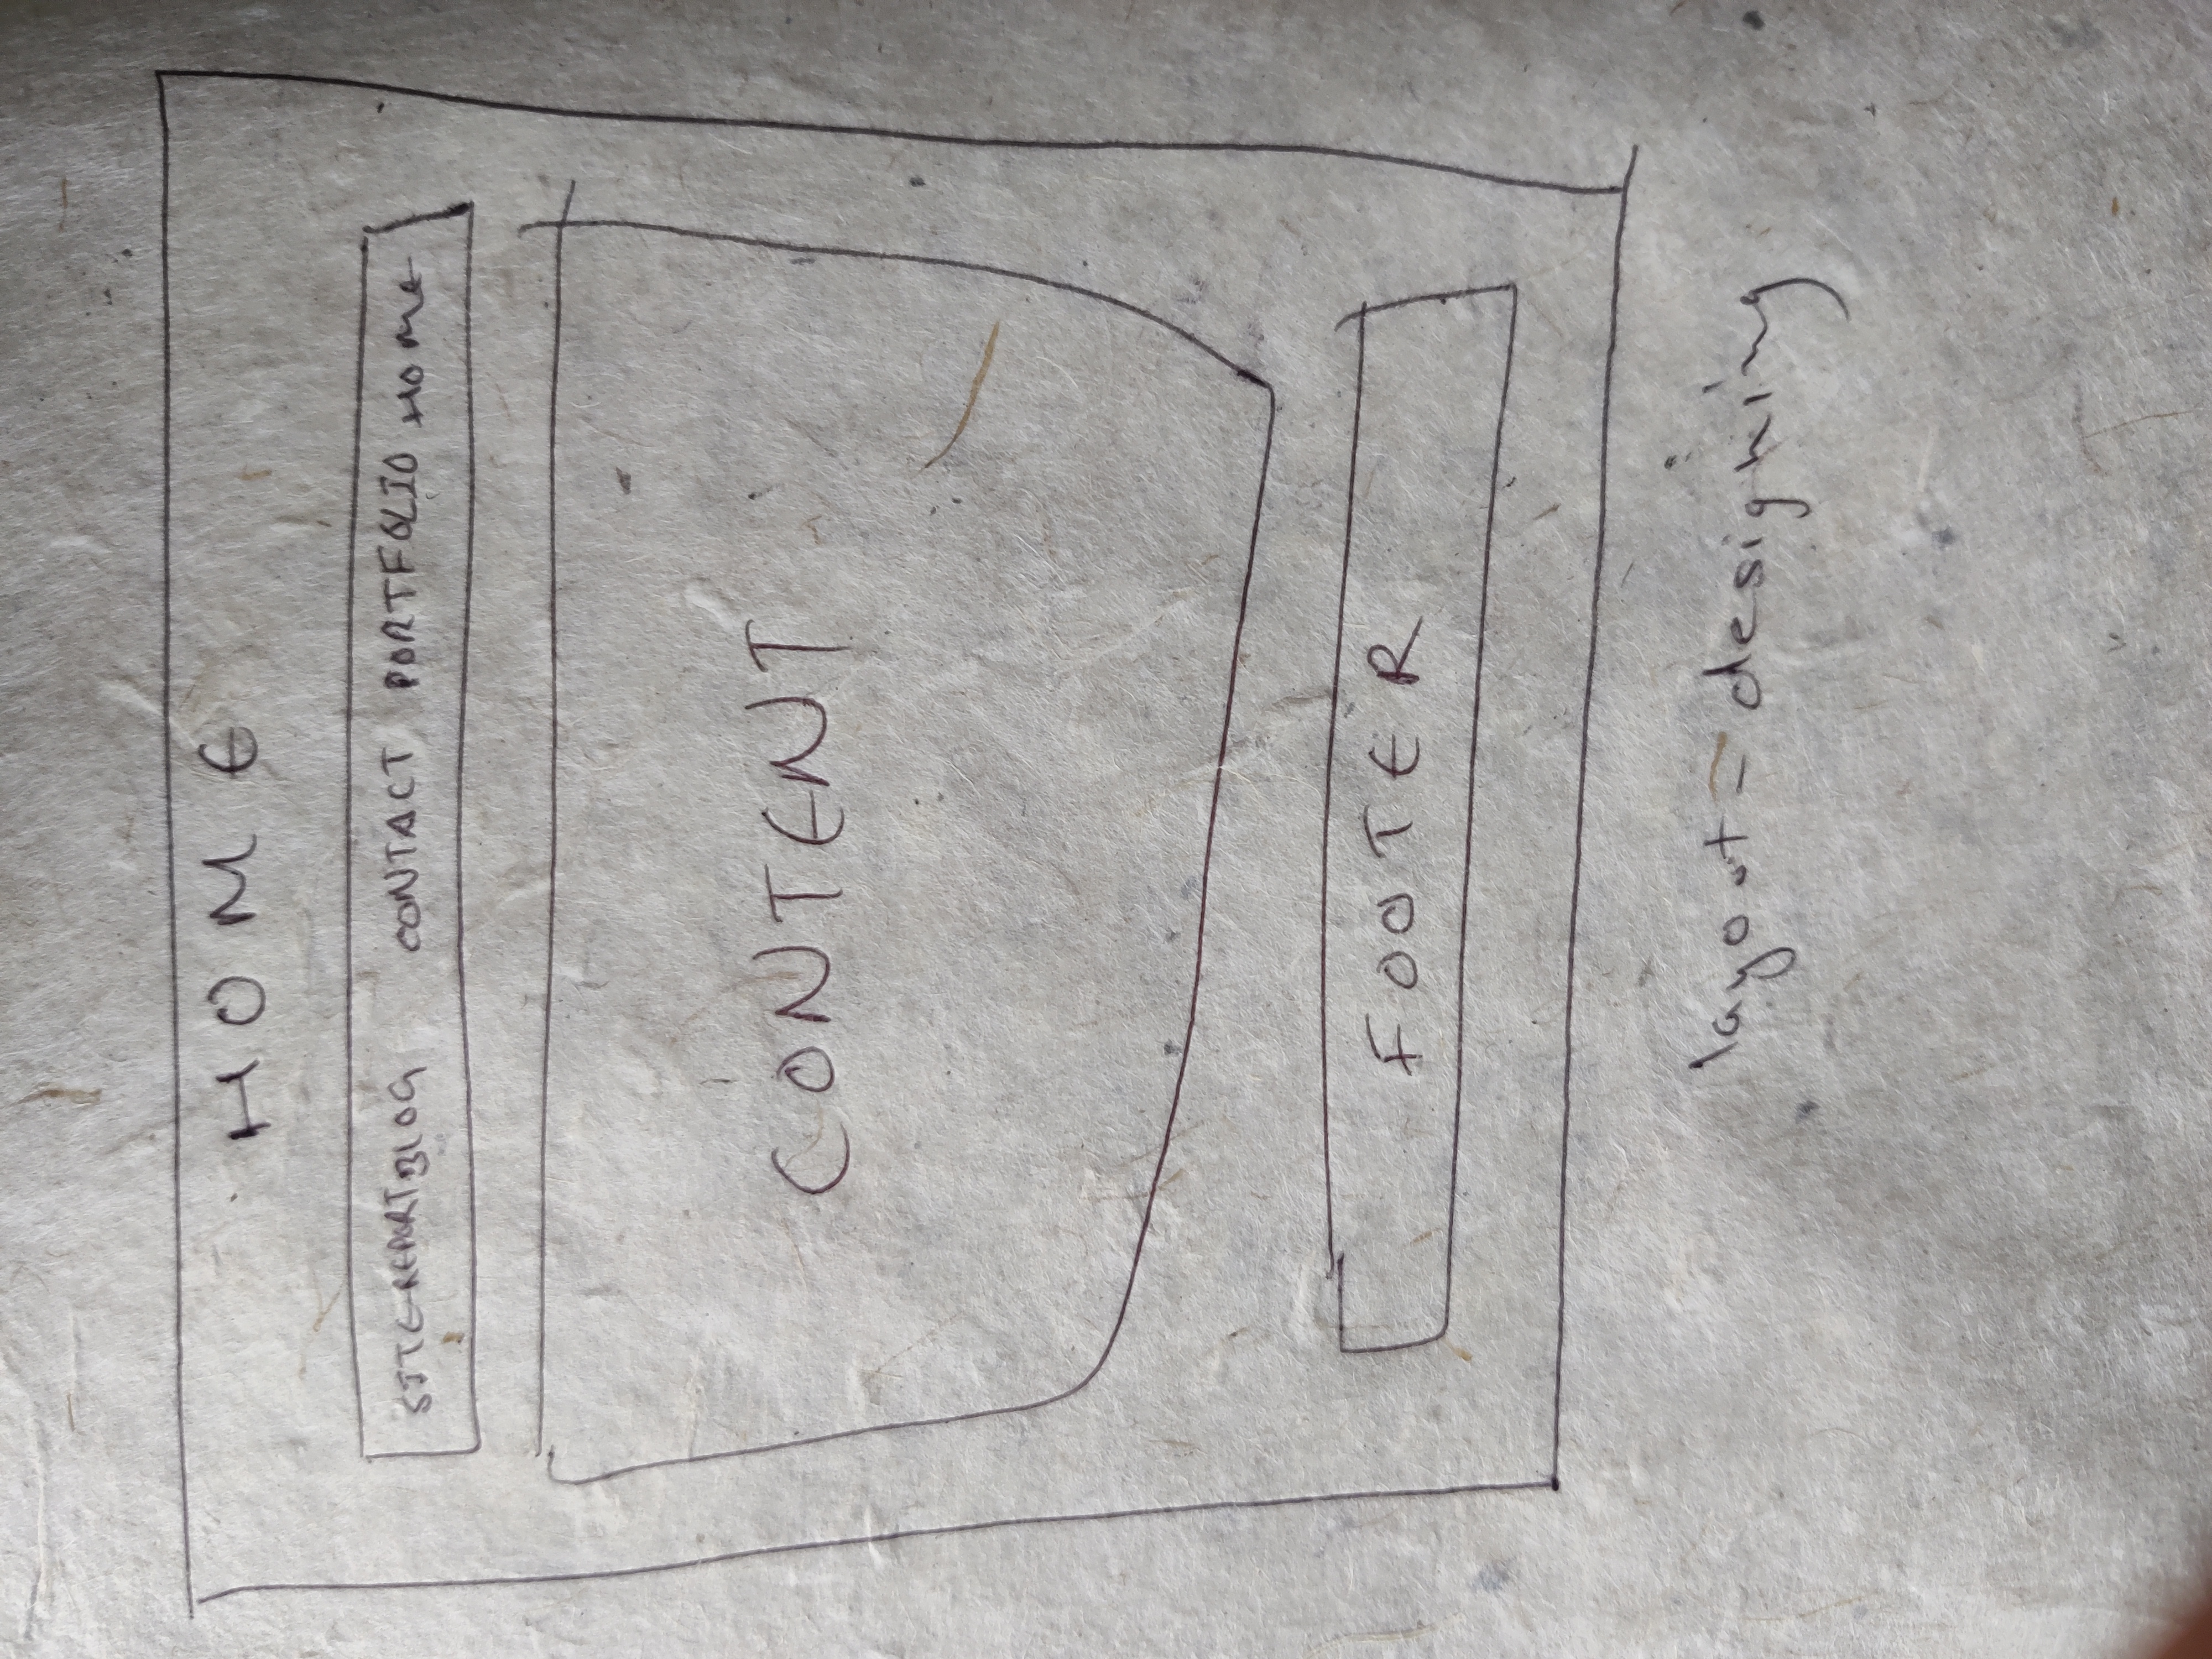 HOME
SITE-REPORT BLOG CONTACT PORTFOLIO HOME
CONTENT
FOOTER
layout = designing